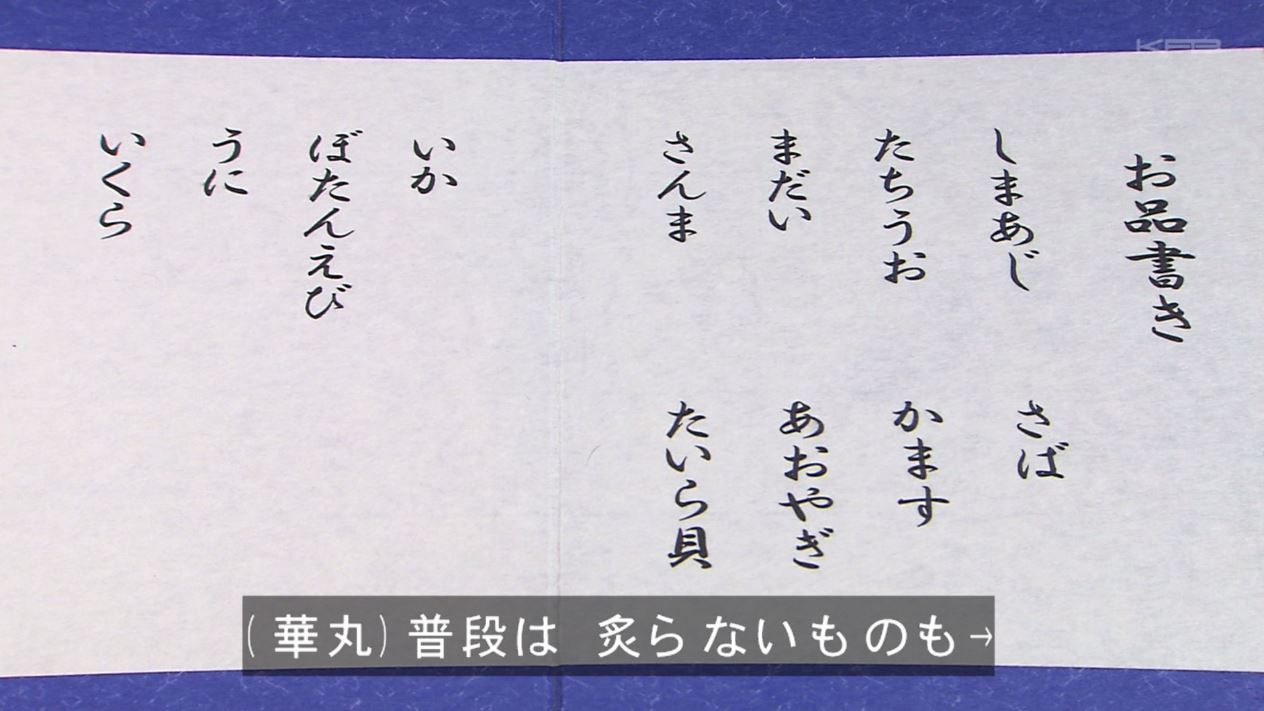 お品書き
しまあじ
さば
たちうお
かます
まだい
あおやぎ
さんま
たいら貝
いか
ぼたんえび
うに
いくら
(華丸)普段は 炙らないものも→
KBB